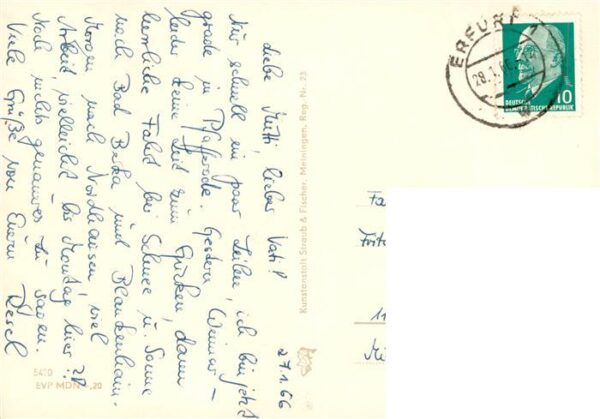 27.1.66
Liebe Mutti, lieber Vati!
Nur schnell ein paar Zeilen, ich bin jetzt
grade in Pfafferode. Gestern Weimar –
leider keine Zeit zum Gucken, dann
herrliche Fahrt bei Schnee u. Sonne
nach Bad Berka und Blankenhain.
Morgen nach Nordhausen, viel
Arbeit, vielleicht bis Montag hier.
Noch nichts genaueres zu sagen.
Viele Grüße von Eurem
Kunstanstalt Straub & Fischer, Meiningen, Reg. Nr. 23
5420
EVP MDN -,20
ERFURT
DEUTSCHE
DEMOKRATISCHE REPUBLIK
10
Fa
Fritz
11